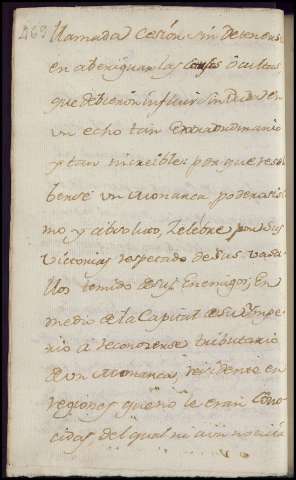 468
llamada Cesión, sin detenerse
en aberiguar las causas ocultas
que debieron influir sin duda en
un echo tan extraordinario
y tan increible: porque resol
berse un Monarca poderosisi
mo y absoluto, Zelebre por sus
victorias respetado de sus vasa
llos temido de sus Enemigos, En
medio de la Capital de su Ympe
rio á reconozerse tributario
de un Monarca, residente en
regiones que no le eran Cono
cidas, del qual ni aun noticia